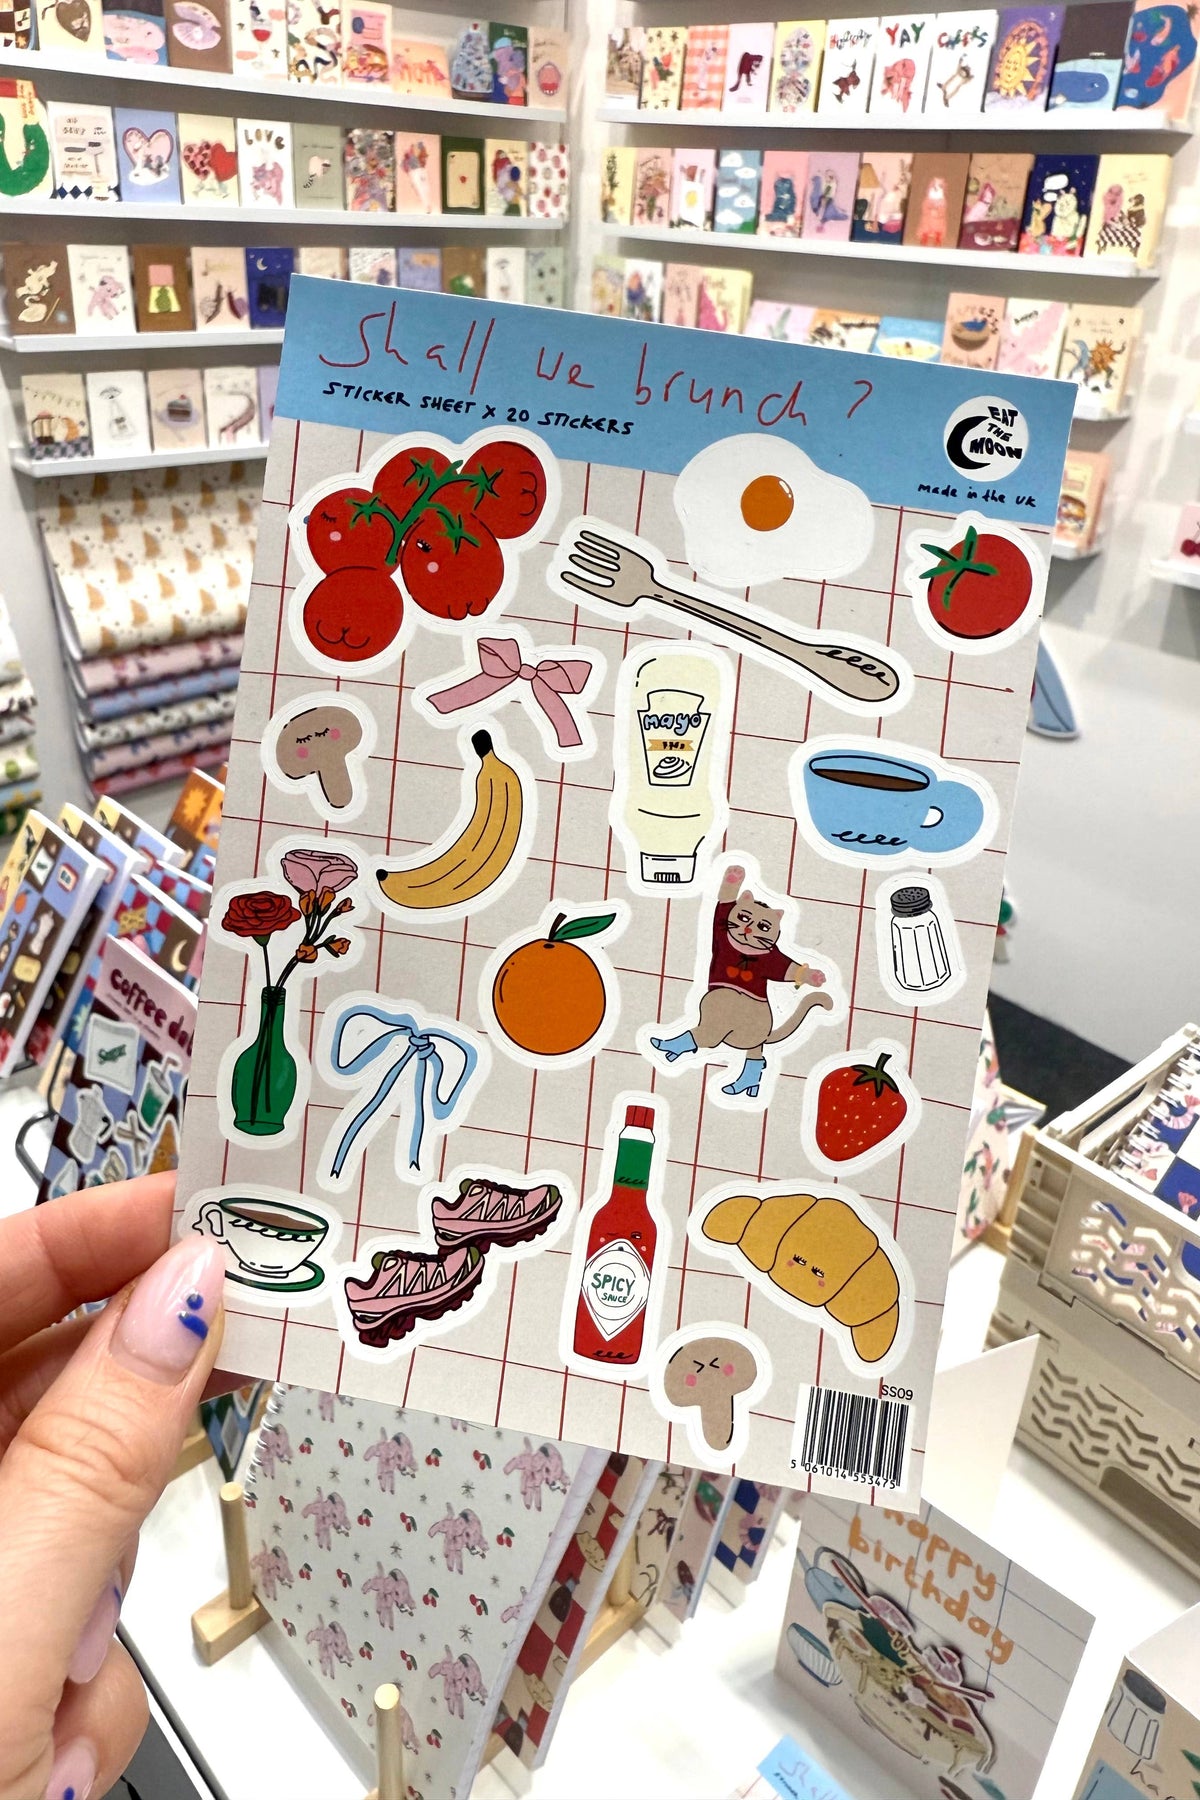 YAY
LOVE
Shall we brunch ?
STICKER SHEET X 20 STICKERS
EAT
THE
MOON
made in the UK
mayo
coffee
Sugar
SPICY
SAUCE
SS09
5 061014 553475
happy
birthday